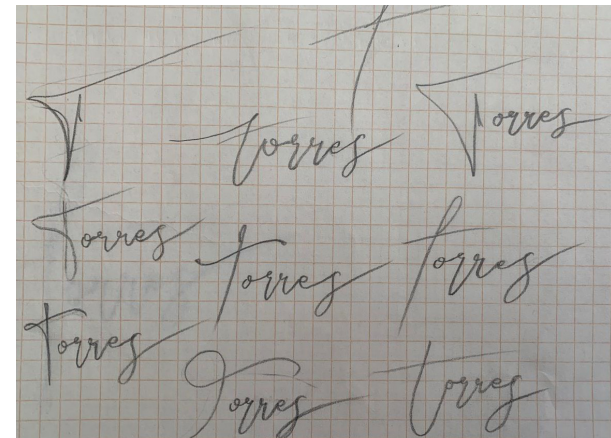 T t
torres Torres
Torres
torres torres
Torres
Torres torres